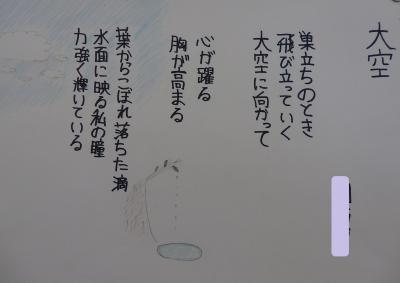 大空
巣立ちのとき
飛び立っていく
大空に向かって
心が躍る
胸が高まる
葉からこぼれ落ちた滴
水面に映る私の瞳
力強く輝いている